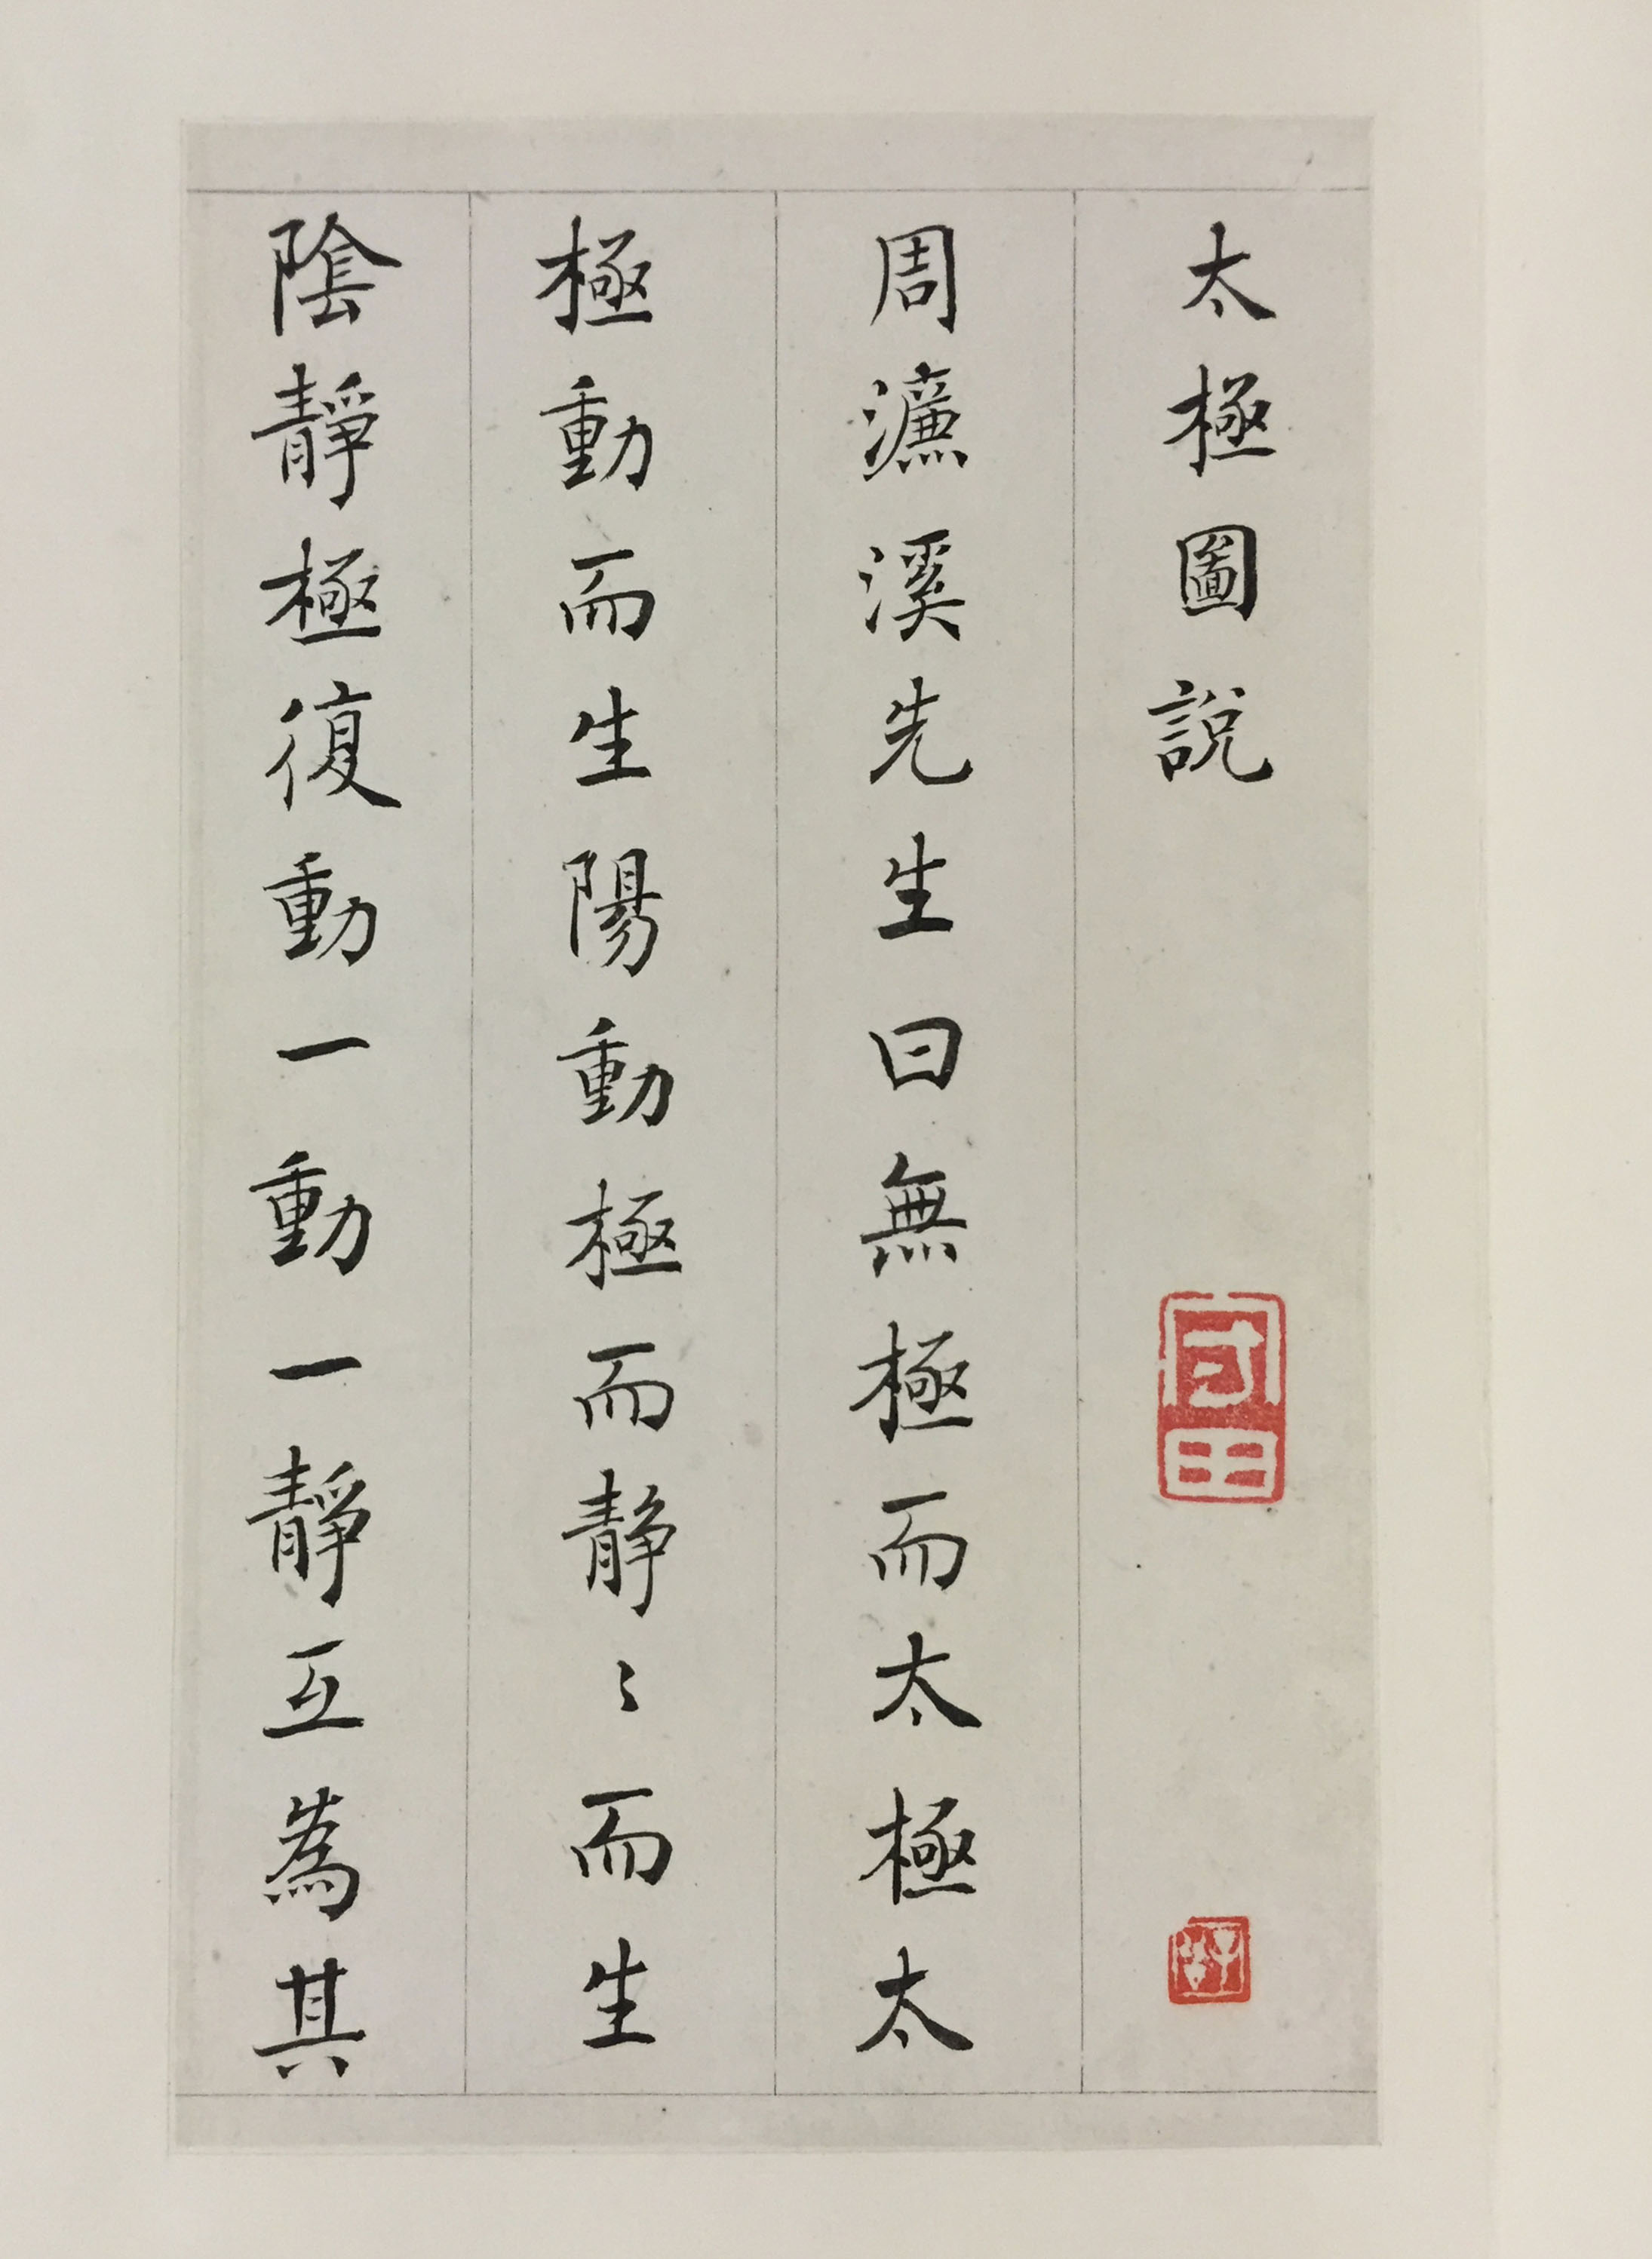 太極圖說
周濂溪先生曰無極而太極太
極動而生陽動極而静〻而生
陰靜極復動一動一靜互為其